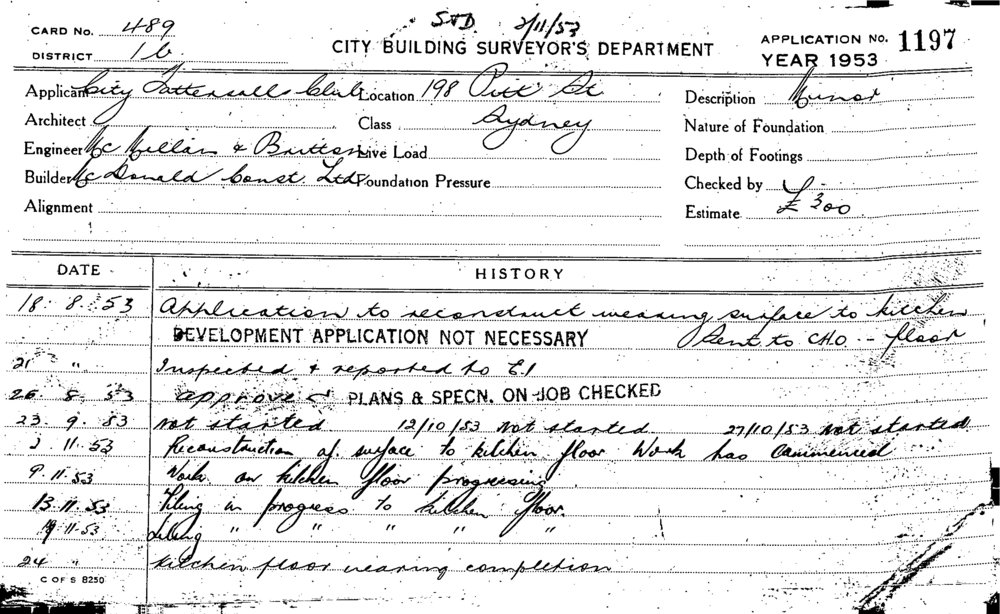 CARD No. 489
STD 3/11/53
DISTRICT 1b
CITY BUILDING SURVEYOR'S DEPARTMENT
APPLICATION No. 1197
YEAR 1953
Applicant City Tattersalls Club Location 198 Pitt St Description Minor
Architect Class Sydney Nature of Foundation
Engineer Mc Millan & Britton Live Load Depth of Footings
Builder Mc Donald Const. Ltd. Foundation Pressure Checked by
Alignment Estimate £300
DATE HISTORY
18. 8. 53 Application to reconstruct wearing surface to kitchen
DEVELOPMENT APPLICATION NOT NECESSARY Plent to CHO - floor
21 " Inspected & reported to E1
26. 8. 53 approved PLANS & SPECN. ON JOB CHECKED
23. 9. 53 not started 12/10/53 not started 27/10/53 not started
3 11. 53 Reconstruction of surface to kitchen floor Work has commenced
9. 11. 53 Work on kitchen floor progressing
13. 11. 53 Tiling in progress to kitchen floor.
19. 11. 53 Tiling " " " " "
24 " kitchen floor nearing completion
C OF S 8250